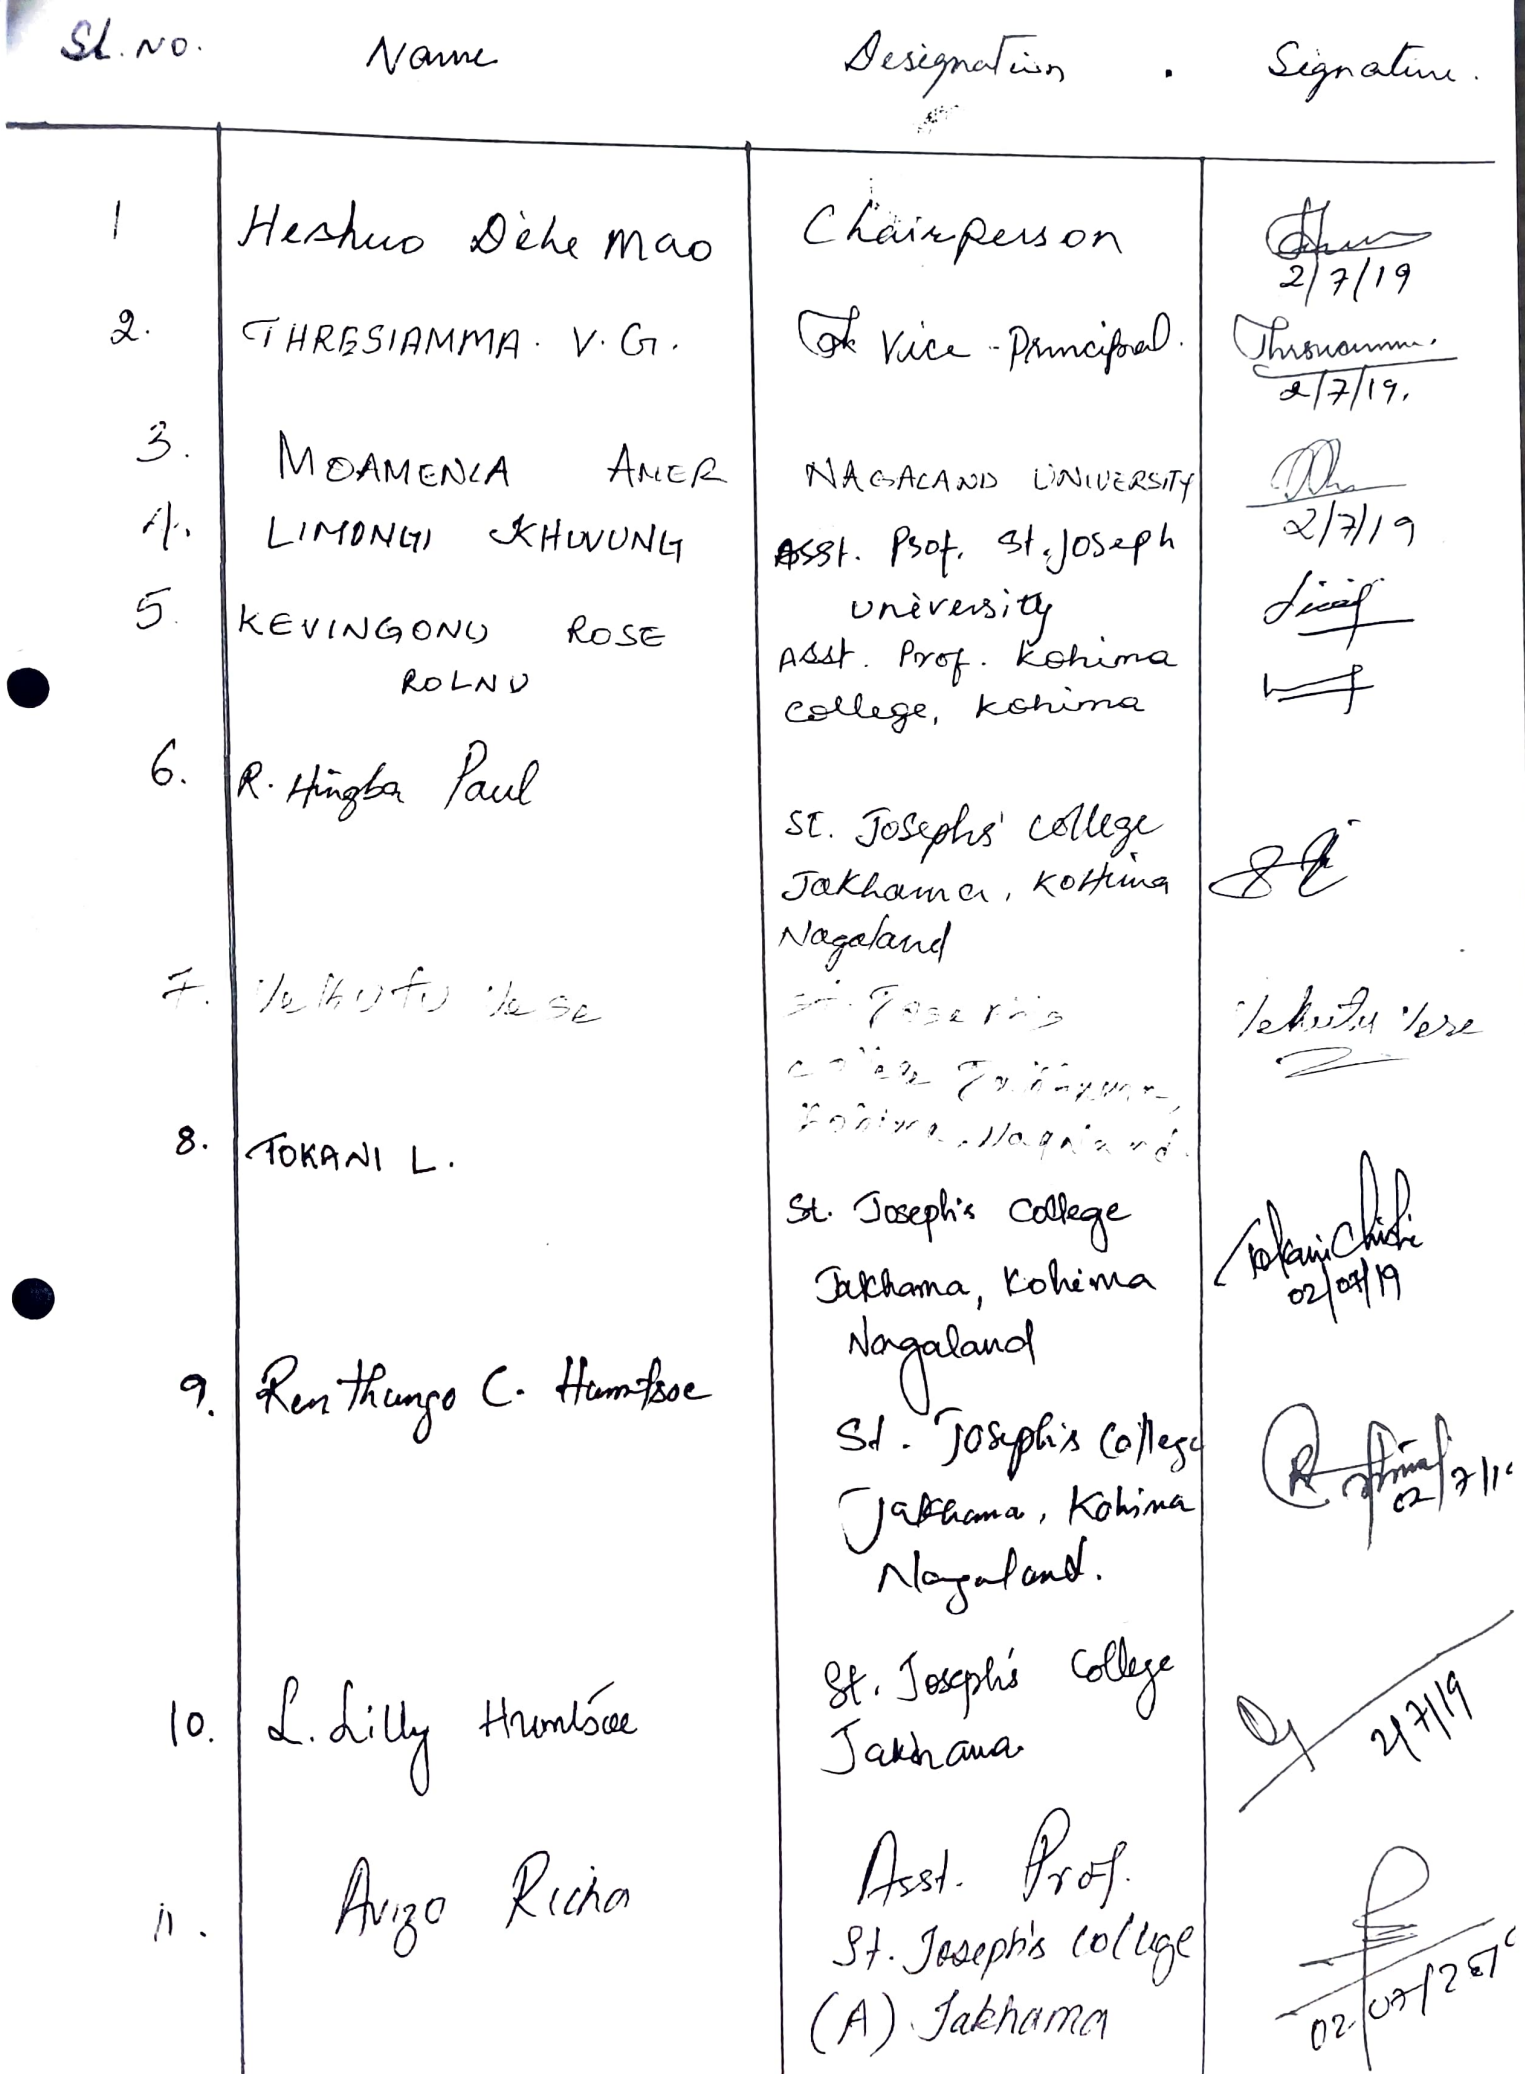 Sl. NO. Name Designation Signature.
1 Heshuo Dihe Mao Chairperson
2/7/19
2. THRESIAMMA. V. G. Vice-Principal. Thresiamma.
2/7/19.
3. MOAMENLA AMER NAGALAND UNIVERSITY
2/7/19
4. LIMONGI KHUVUNG Asst. Prof. St. Joseph
university
5. KEVINGONU ROSE
ROLNU
Asst. Prof. Kohima
college, Kohima
6. R. Hingba Paul
St. Josephs' college
Jakhama, Kohima
Nagaland
7. Vekhutu Vese St. Joseph's Vekutu Vese
college Jakhama,
Kohima, Nagaland.
8. TOKANI L.
St. Joseph's College
Jakhama, Kohima
Nagaland
Tokani Chishi
02/07/19
9. Renthungo C. Humtsoe
St. Joseph's College
Jakhama, Kohima
Nagaland.
02/7/19
10. L. Lilly Humtsoe
St. Joseph's College
Jakhama
2/7/19
11. Avizo Richa
Asst. Prof.
St. Joseph's College
(A) Jakhama
02/07/2019